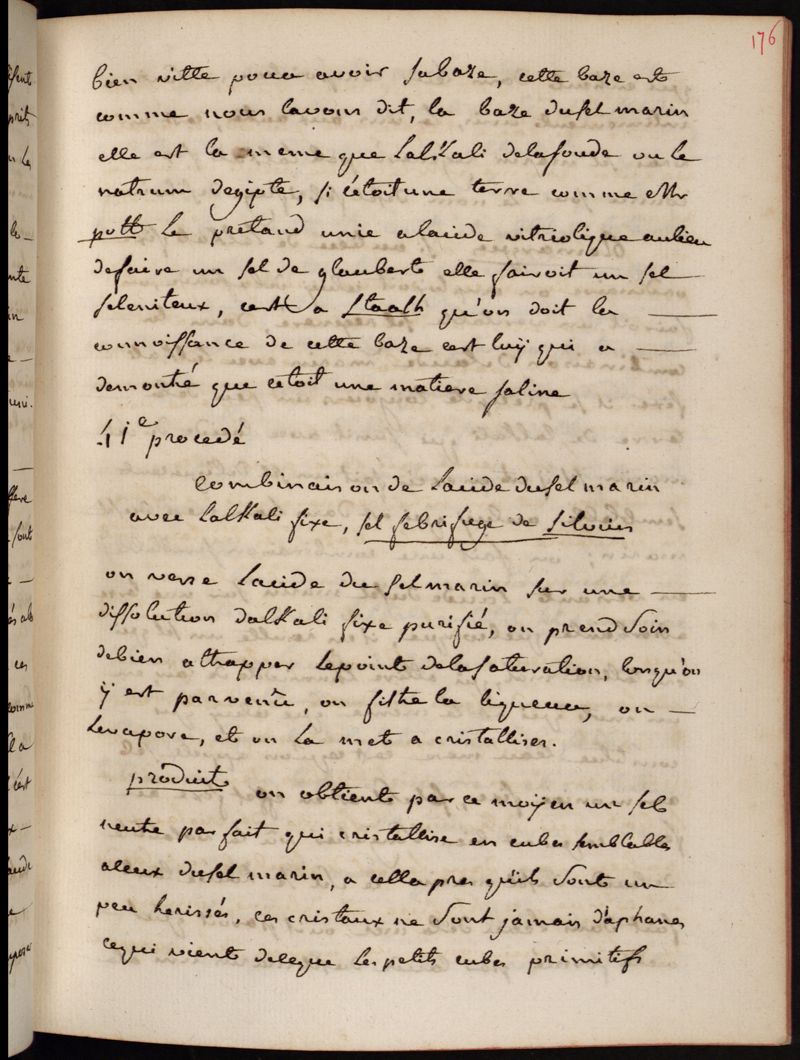 176
bien vitte pour avoir sa baze, cette baze est
comme nous lavons dit, la baze du sel marin
elle est la meme que Lalkali de la soude ou le
natrum degipte, si cétoit une terre comme Mr
pott le pretand unie a lacide vitriolique au lieu
de faire un sel de glaubert elle fairoit un sel
seleniteux, cest a Staalh qu'on doit la
connoissance de cette baze cest luÿ qui a
demontré que cetoit une matiere saline
41e procedé
Combinaison de Lacide du sel marin
avec Lalkali fixe, sel febrifuge de Silvius
on verse Lacide du sel marin sur une
dissolution dalkali fixe purifié, on prend soin
de bien atrapper le point de la saturation, lorsqu'on
ÿ est parvenu, on filtre la liqueur, on
Levapore, et on La met a cristalliser.
produit on obtient par ce moÿen un sel
neutre parfait qui cristallise en cubes semblables
a ceux du sel marin, a cella pres qu'ils sont un
peu herissés, ces cristaux ne sont jamais diaphanes
ce qui vient de ce que les petits cubes primitifs